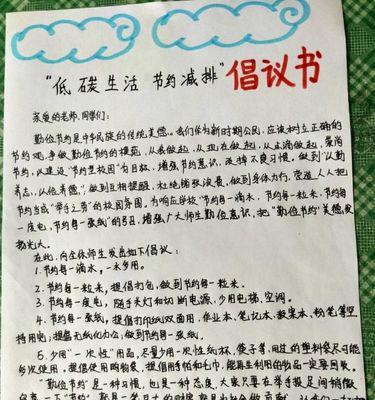 “低碳生活 节约减排”倡议书
亲爱的老师、同学们：
勤俭节约是中华民族的传统美德。我们作为新时期公民，应该树立正确的
节约观，争做勤俭节约的模范，从我做起，从现在做起，从点滴做起，崇尚
节约，以建设“节约型校园”为目标，增强节约意识，改掉不良习惯，做到“以勤
养志，以俭养德”，做到互相提醒，杜绝铺张浪费，做到身体力行，营造人人把
节约当成“举手之劳”的校园氛围。为响应学校“节约每一滴水，节约每一粒米，节约每
一度电，节约每一张纸”的号召，增强广大师生勤俭意识，把“勤俭节约”美德发
扬光大。
在此，向全体师生发出如下倡议：
1.节约每一滴水，一水多用。
2.节约每一粒米，提倡打包，做到节约每一粒米。
3.节约每一度电，随手关灯和切断电源，少用电梯、空调。
4.节约每一张纸，提倡打印纸双面用，作业本、笔记本、教案本、粉笔等坚
持用完；提倡无纸化办公，做到节约每一张纸。
5.少用“一次性”用品，尽量少用一次性纸杯、筷子等，用过的塑料袋尽可能
多次使用。提倡使用购物袋，提倡用手帕和毛巾，能再生利用的物品一定要回收。
“勤俭节约”是一种习惯，也是一种态度，大家只要在举手投足间稍微